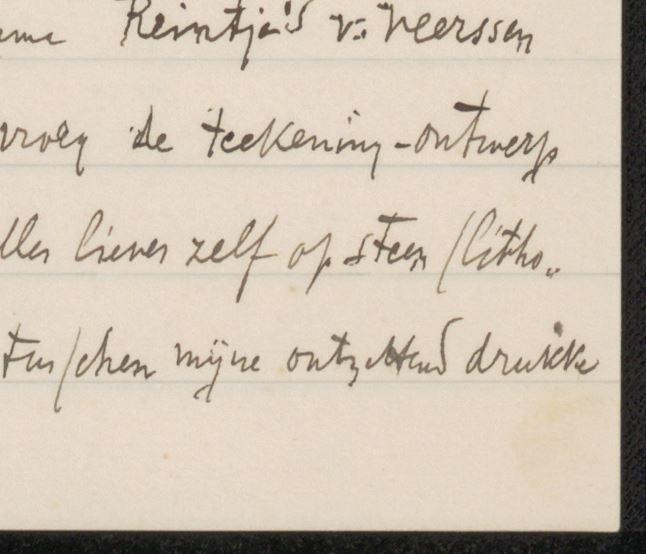 Reintje's v. Veerssen
vroeg de teekening-ontwerp
lles liever zelf op steen (litho„
tusschen mijne ontzettend drukke